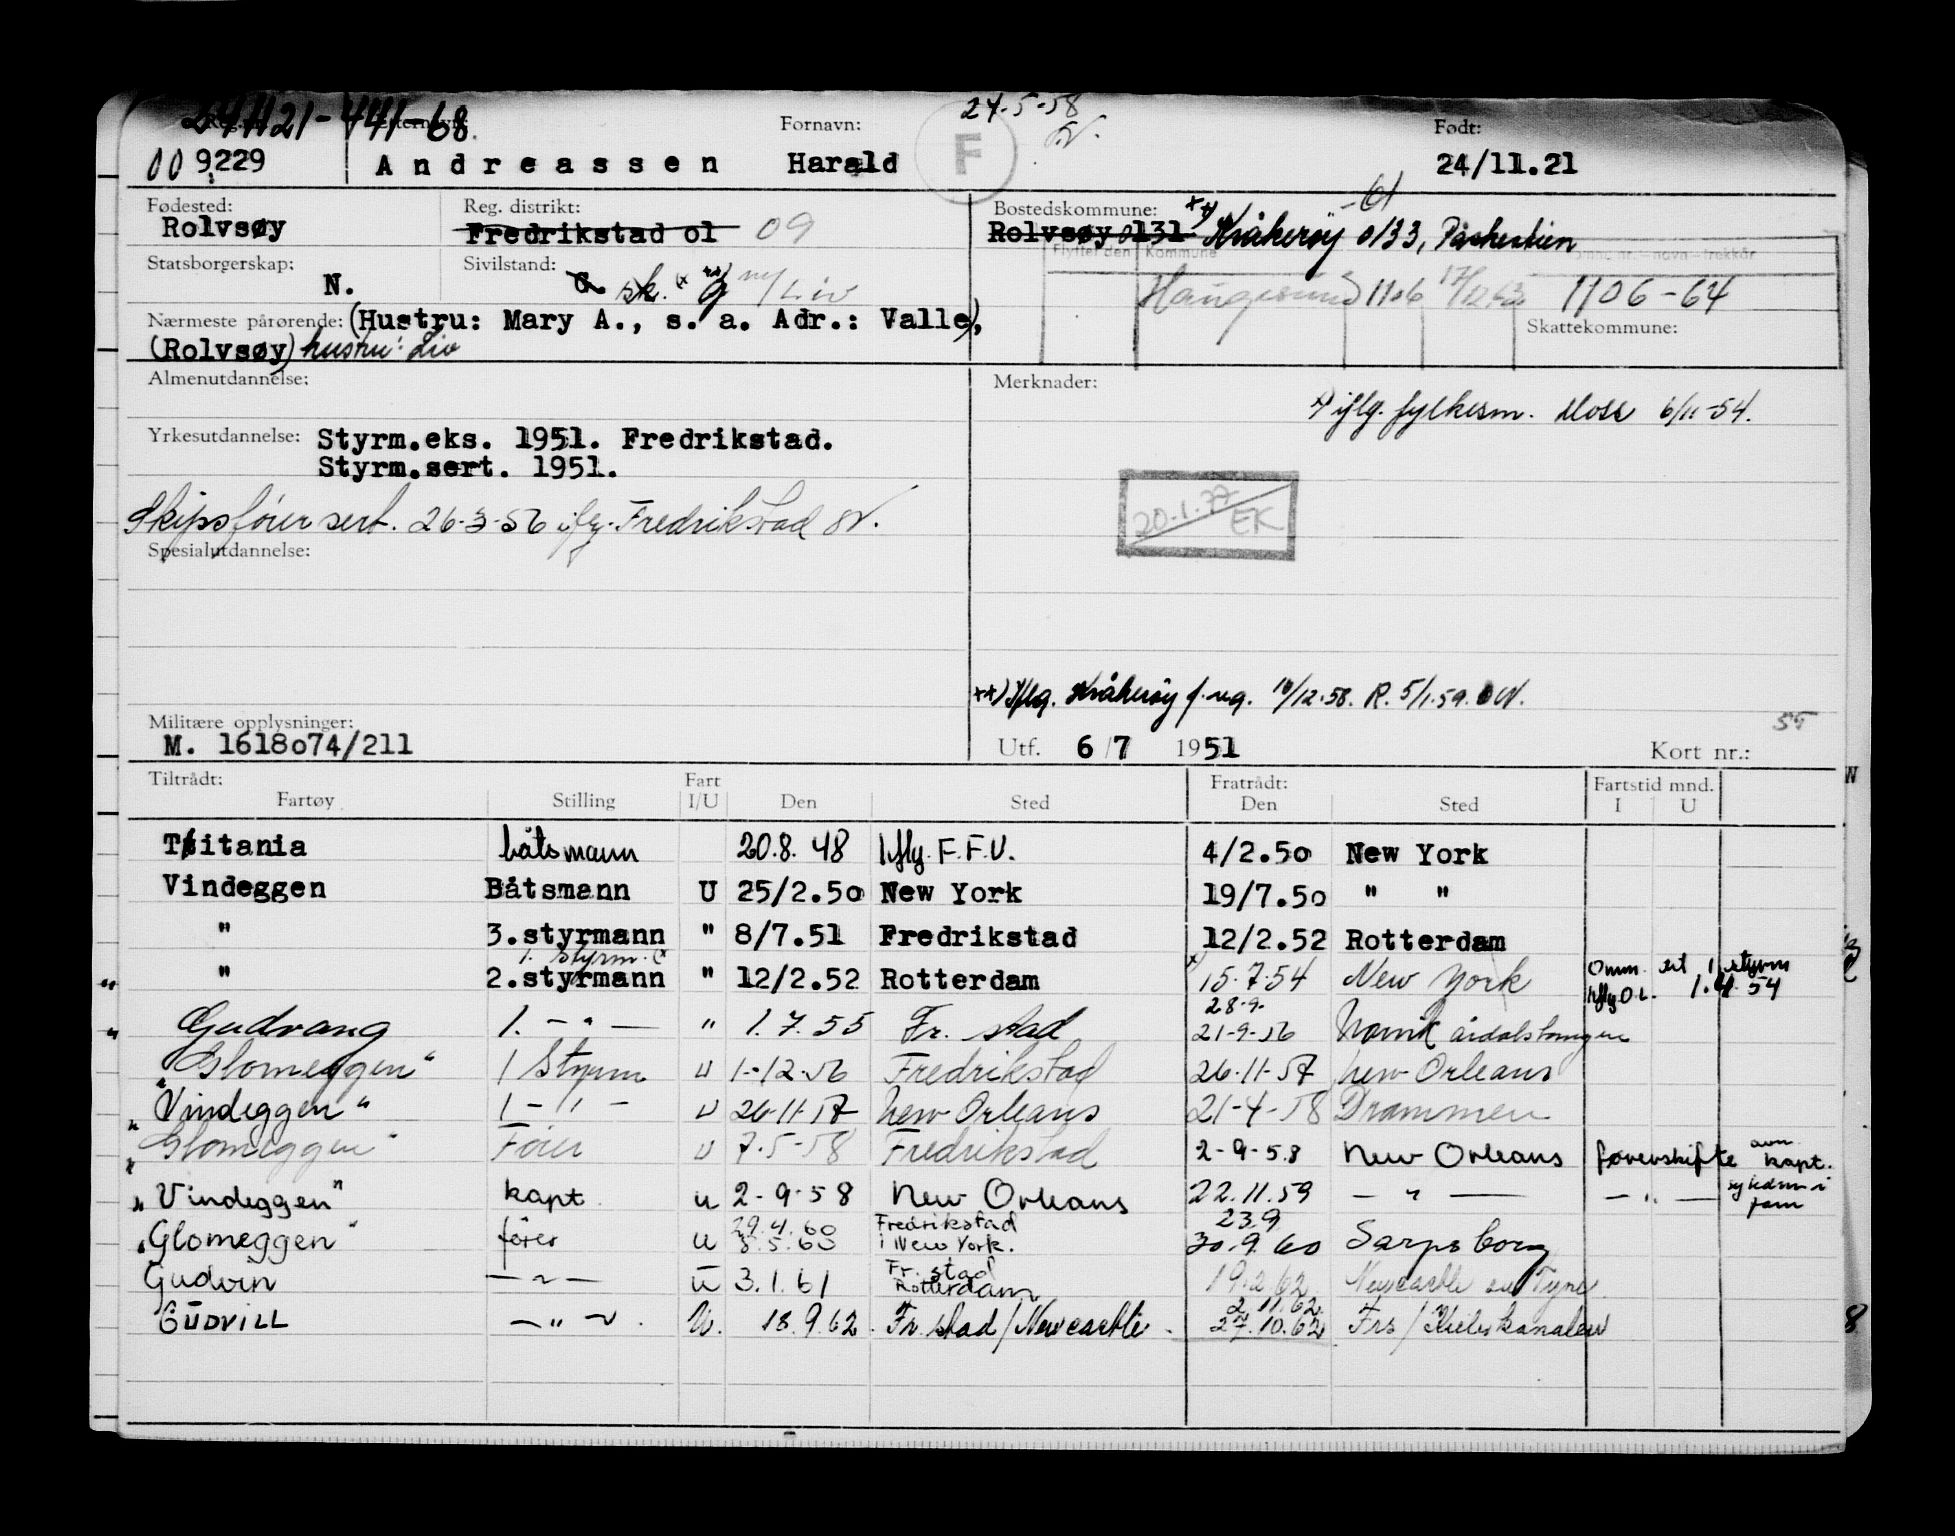 241121-441-68. 24-5-58
Fornavn: Født:
00 9229 Andreassen Harald F 24/11.21
Fødested: Reg. distrikt: Bostedskommune: -61
Rolvsøy Fredrikstad ol 09 Rolvsøy 0131 xx) Kråkerøy 0133,
Flyttet den Kommune
Statsborgerskap: Sivilstand:
N. G sk. (x g ny/Liv Haugesund 1106 17/12.63 1106-64
Nærmeste pårørende: (Hustru: Mary A., s. a. Adr.: Valle), Skattekommune:
(Rolvsøy) hustru: Liv
Almenutdannelse: Merknader:
x) iflg. fylkesm. Moss 6/11-54.
Yrkesutdannelse: Styrm.eks. 1951. Fredrikstad.
Styrm.sert. 1951.
Skipsfører sert. 26-3-56 ifg. Fredrikstad
20.1.77 EK
Spesialutdannelse:
xx) Iflg. Kråkerøy f.reg. 10/12.58. R. 5/1.59.
Militære opplysninger: 55
M. 1618o74/211 Utf. 6/7 1951 Kort nr.:
Tiltrådt: Fart Fratrådt: Fartstid mnd.
Fartøy Stilling I/U Den Sted Den Sted I U
Titania båtsmann 20.8.48 Iflg. F.F.U. 4/2.5o New York
Vindeggen Båtsmann U 25/2.5o New York 19/7.5o " "
" 3.styrmann " 8/7.51 Fredrikstad 12/2.52 Rotterdam
1. styrm. (x
" 2.styrmann " 12/2.52 Rotterdam x) 15.7.54 New York Omm. sit 1 styrm
Iflg. O.L. 1.4.54
28-9.
" Gudvang 1. - " - " 1.7.55 Fr. stad 21-9-56 Narvik
"Glomeggen" 1 Styrm U 1-12-56 Fredrikstad 26-11-57 New Orleans
"Vindeggen" 1 - " - U 26-11-57 New Orleans 21-4-58 Drammen
"Glomeggen" Fører U 7-5-58 Fredrikstad 2-9-58 New Orleans førerskifte kapt.
"Vindeggen" kapt. u 2-9-58 New Orleans 22.11.59 - " - - " - sykdom i fam
29.4.60 Fredrikstad 23.9
"Glomeggen" fører u 8.5.60 i New York. 30.9.60 Sarpsborg
Fr. stad
Gudvin - " - u 3.1.61 Rotterdam 19.2.62 Newcastle on Tyne.
2.11.62
GUDVILL - " - . U. 18.9.62. Fr. stad/Newcastle. 27.10.62 Frs/Kielerkanalen